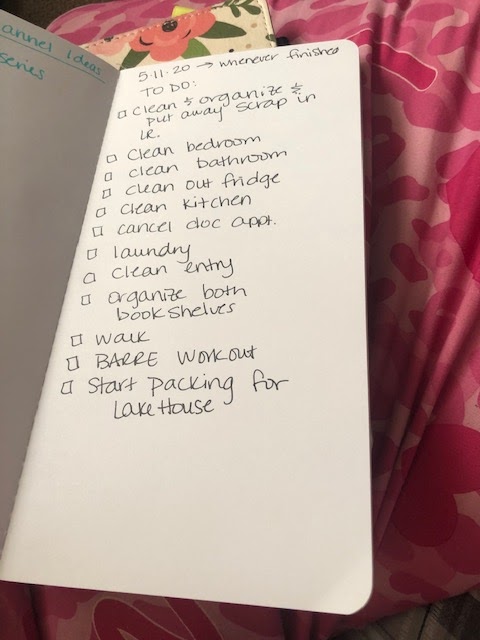 annel Ideas
series
5.11.20 → whenever finished
TO DO:
□ Clean & organize &
put away scrap in
LR.
□ Clean bedroom
□ clean bathroom
□ clean out fridge
□ clean kitchen
□ cancel doc appt.
□ laundry
□ clean entry
□ organize both
bookshelves
□ walk
□ BARRE workout
□ Start packing for
Lake House